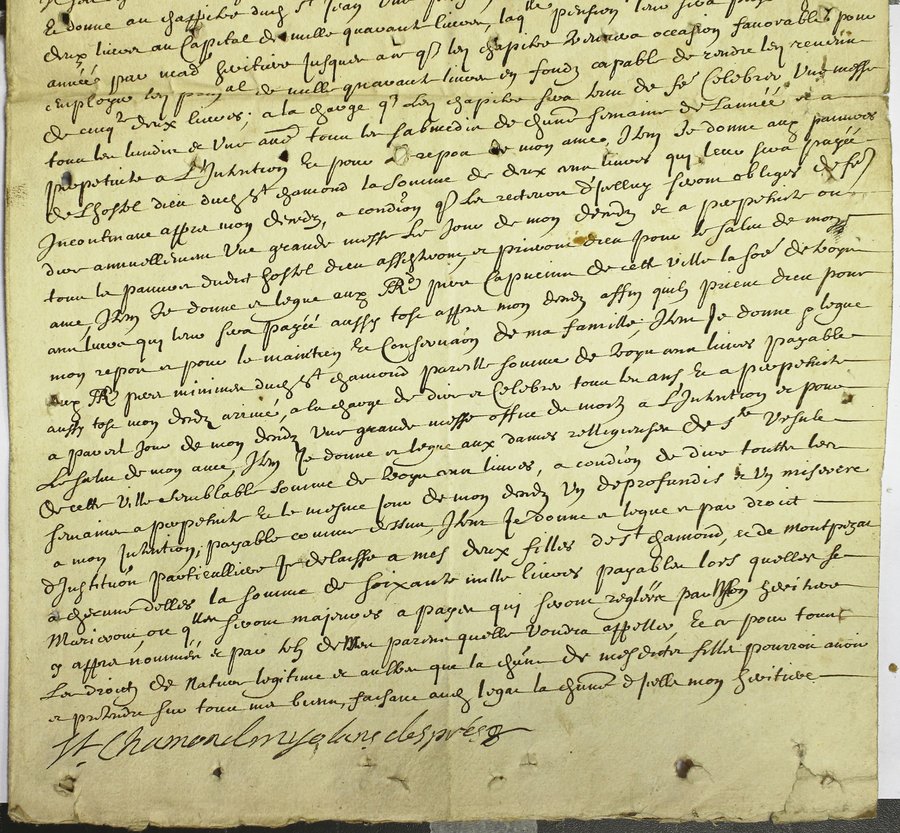 Et donne au chappitre dud st Jean une
deux livres au Capital de mille quarante livres, laqlle pension leur sera
année par mad heritiere jusques a ce q led chappitre trouvera occasion favorable pour
employer led prinal de mille quarante livres en fondz capable de rendre led revenu
de cinqte deux livres; a la charge q led chappitre sera tenu de fe Celebrer une messe
tous les lundis et une aue tous les sabmedis de chune semaine de l'année et a
perpetuité a L'Intention Et pour le repos de mon ame, Item Je donne aux pauvres
de Lhostel dieu dud st chamond la somme de deux cens livres qui leur sera payée
Incontinant appres mon decedz, a condion q les recteurs d'Icelluy seront obliges de fe
dire annuellement une grande messe Le Jour de mon decedz et a perpetuité ou
tous les pauvres dudit hostel dieu assisteront et prieront dieu pour le salut de mon
ame, Item Je donne et legue aux RRds peres Capucins de cette ville la soe de
cens livres qui leur sera payée aussy tost appres mon decedz affin quils prient dieu pour
mon repos et pour le maintien Et Conservaon de ma famille, Item Je donne & legue
aux RRds peres minimes dud st chamond pareille somme de cens livres payable
aussy tost mon decedz arrivé, a la charge de dire et Celebrer tous les ans Et a perpetuité
a pareil jour de mon decedz une grande messe office de mortz a L'Intention et pour
Le salut de mon ame, Item Je donne et legue aux dames relligieuses de Ste Ursule
de cette ville semblable somme de cens livres, a condion de dire touttes les
semaines a perpetuité Et le mesme jour de mon decedz un deprofundis et un miserere
a mon Intention, payable comme dessus, Item Je donne et legue et par droict
d'Jnstituon particulliere Je delaisse a mes deux filles de st chamond, et de Montpezat
a chacune delles la somme de soixante mille livres payables lors quelles se
Marieront, ou qlles seront majeures a payer qui seront reglées par Mon heritiere
cy appres nommée et par tels de Mes parens quelle voudra appeller Et ce pour tous
Les droictz de Nature legitime et aultres que la chune de mesdites filles pourroit avoir
et pretendre sur tous mes biens, faisant aud legat la chune d'Icelle mon heritiere
St Chamond